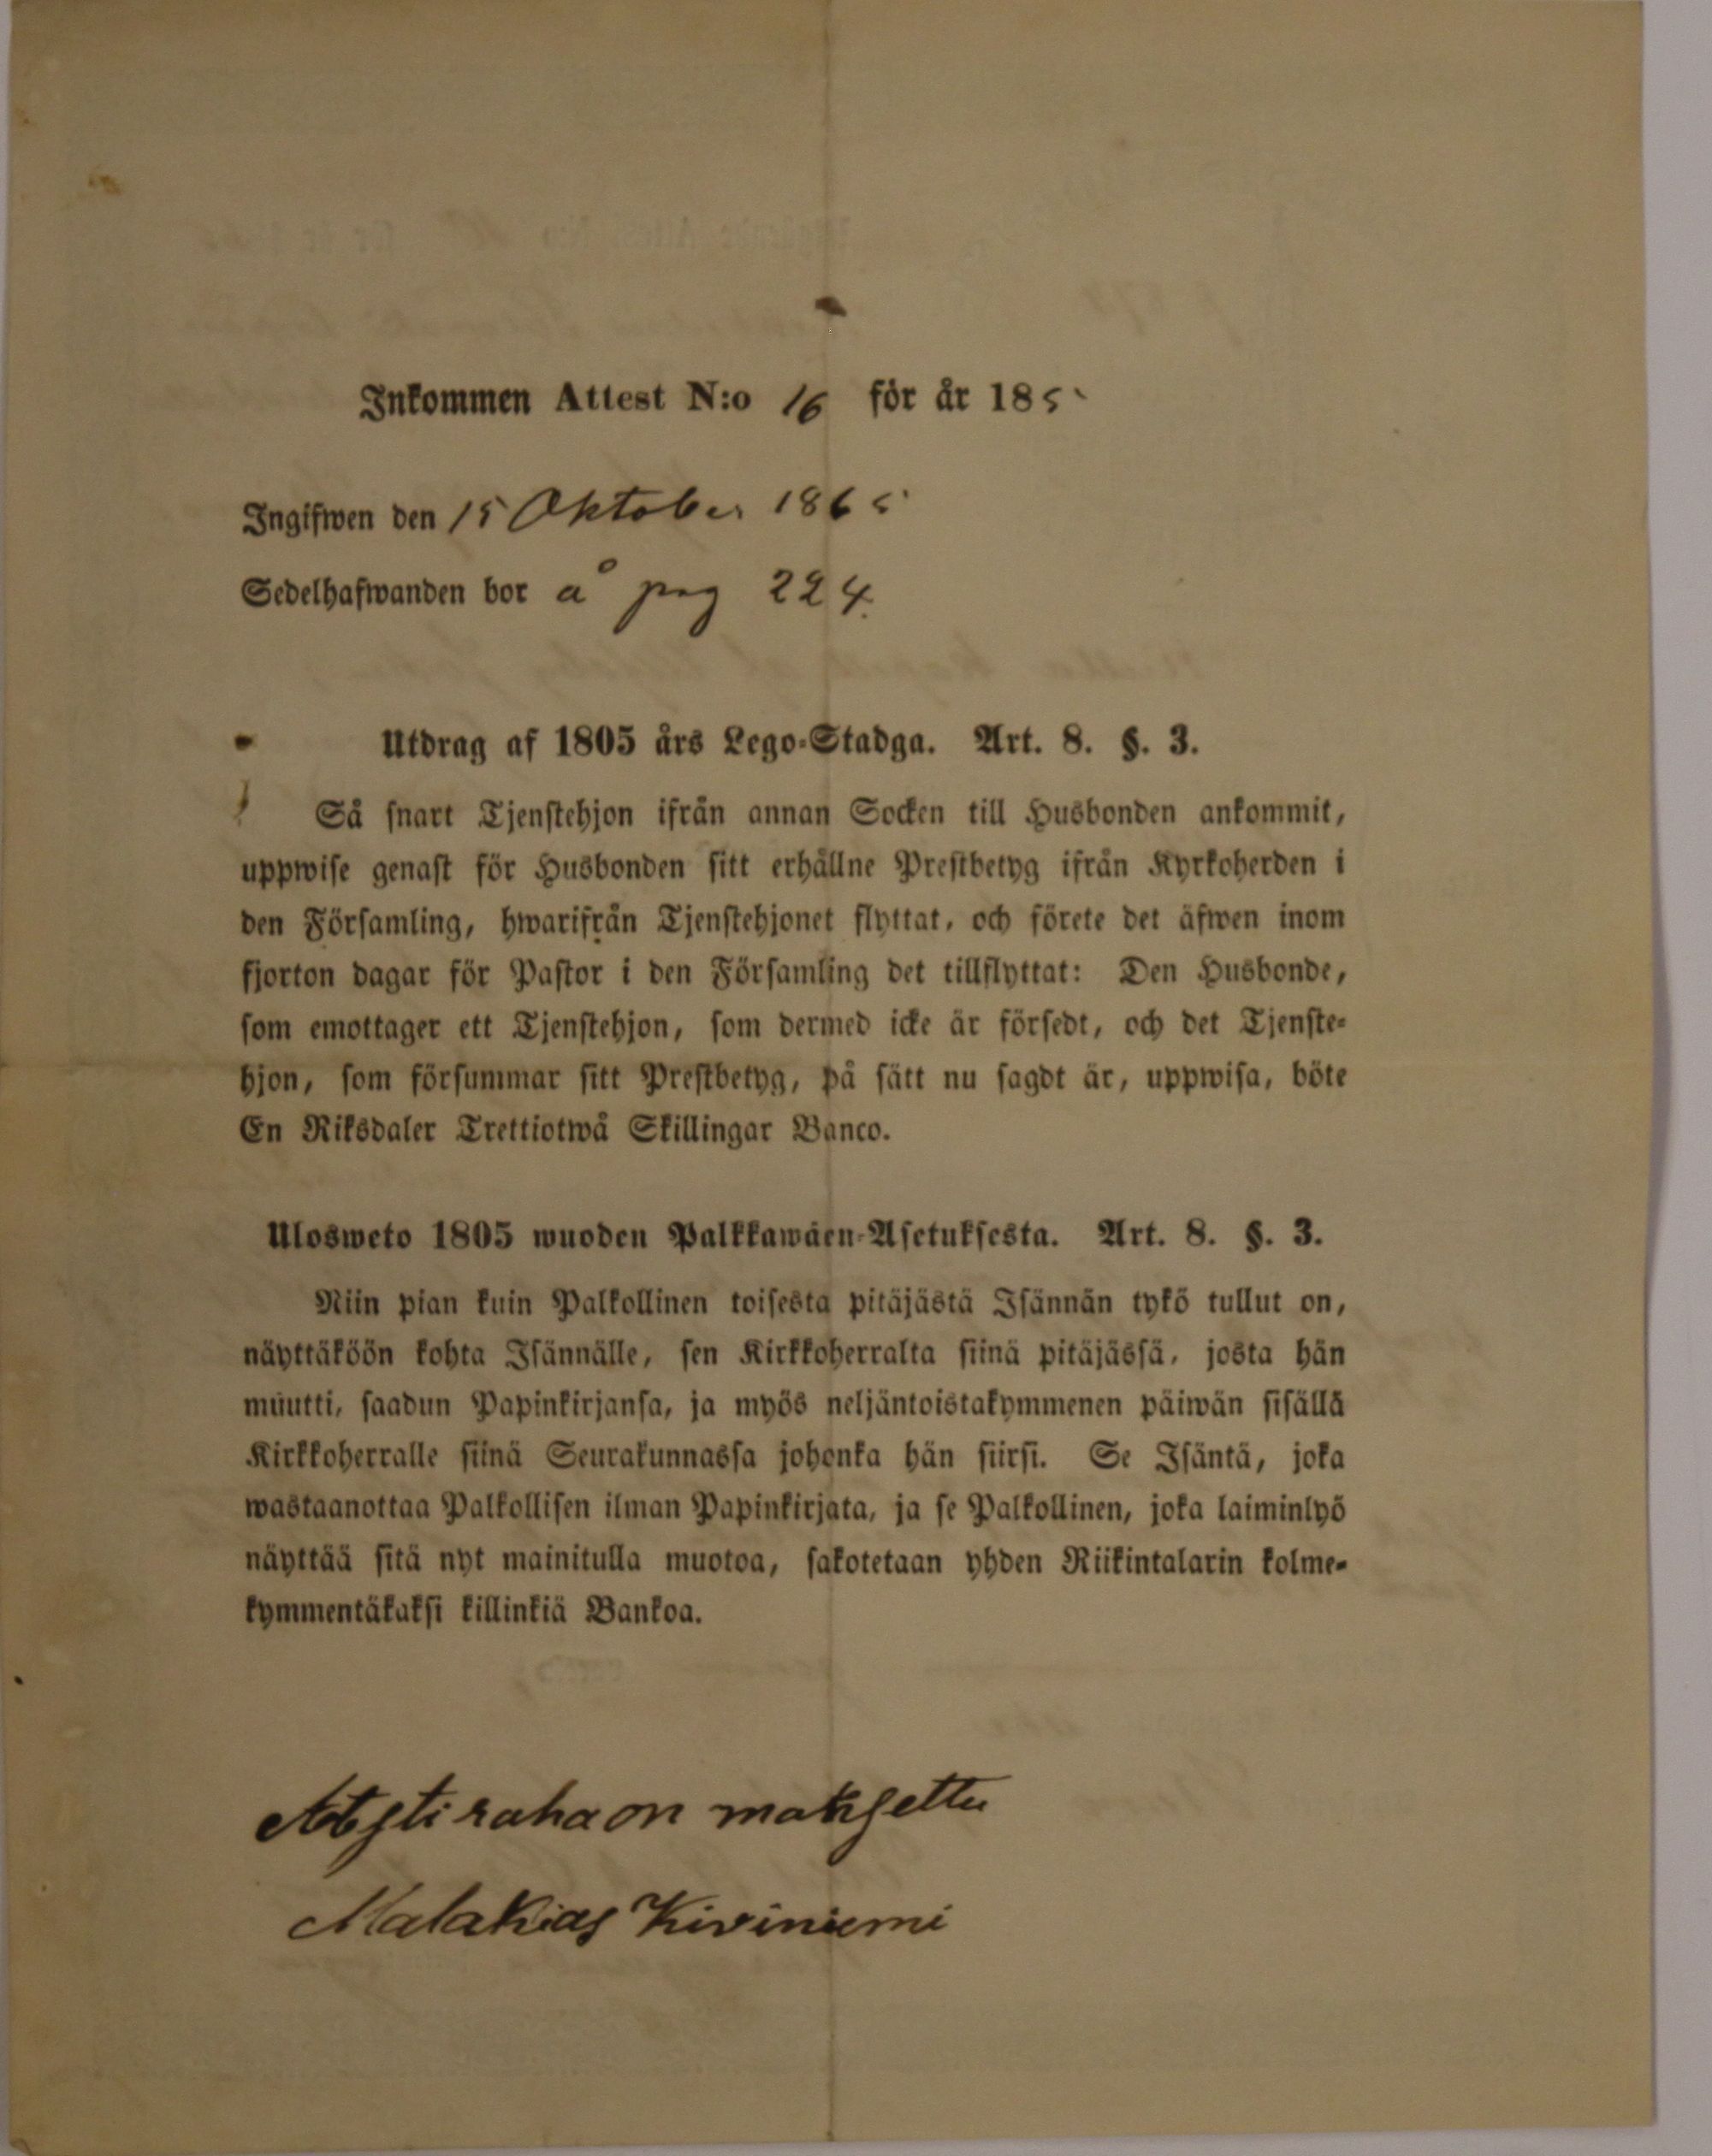 Inkommen Attest N:o 16 för år 185
Ingifwen den 15 Oktober 1865
Sedelhafwanden bor å pag 224.
Utdrag af 1805 års Lego-Stadga. Art. 8. §. 3.
Så snart Tjenstehjon ifrån annan Socken till Husbonden ankommit,
uppwise genast för Husbonden sitt erhållne Prestbetyg ifrån Kyrkoherden i
den Församling, hwarifrån Tjenstehjonet flyttat, och förete det äfwen inom
fjorton dagar för Pastor i den Församling det tillflyttat: Den Husbonde,
som emottager ett Tjenstehjon, som dermed icke är försedt, och det Tjenste-
hjon, som försummar sitt Prestbetyg, på sätt nu sagdt är, uppwisa, böte
En Riksdaler Trettiotwå Skillingar Banco.
Ulosweto 1805 wuoden Palkkawäen-Asetuksesta. Art. 8. §. 3.
Niin pian kuin Palkollinen toisesta pitäjästä Isännän tykö tullut on,
näyttäköön kohta Isännälle, sen Kirkkoherralta siinä pitäjässä, josta hän
muutti, saadun Papinkirjansa, ja myös neljäntoistakymmenen päiwän sisällä
Kirkkoherralle siinä Seurakunnassa johonka hän siirsi. Se Isäntä, joka
wastaanottaa Palkollisen ilman Papinkirjata, ja se Palkollinen, joka laiminlyö
näyttää sitä nyt mainitulla muotoa, sakotetaan yhden Riikintalarin kolme-
kymmentäkaksi killinkiä Bankoa.
raha on maksettu
Malakias Kiviniemi